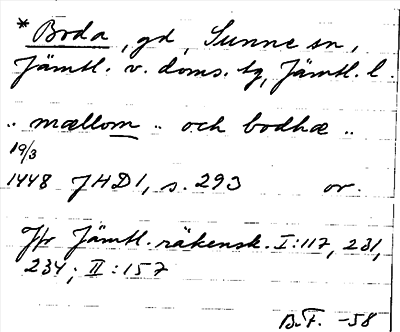 *Boda, gd, Sunne sn,
Jämtl. v. doms. tg, Jämtl. l.
.. mællom .. och bodhæ ..
19/3
1448 JHD1, s. 293 or.
Jfr Jämtl. räkensk. I:117, 231,
234; II:157
B.F. -58